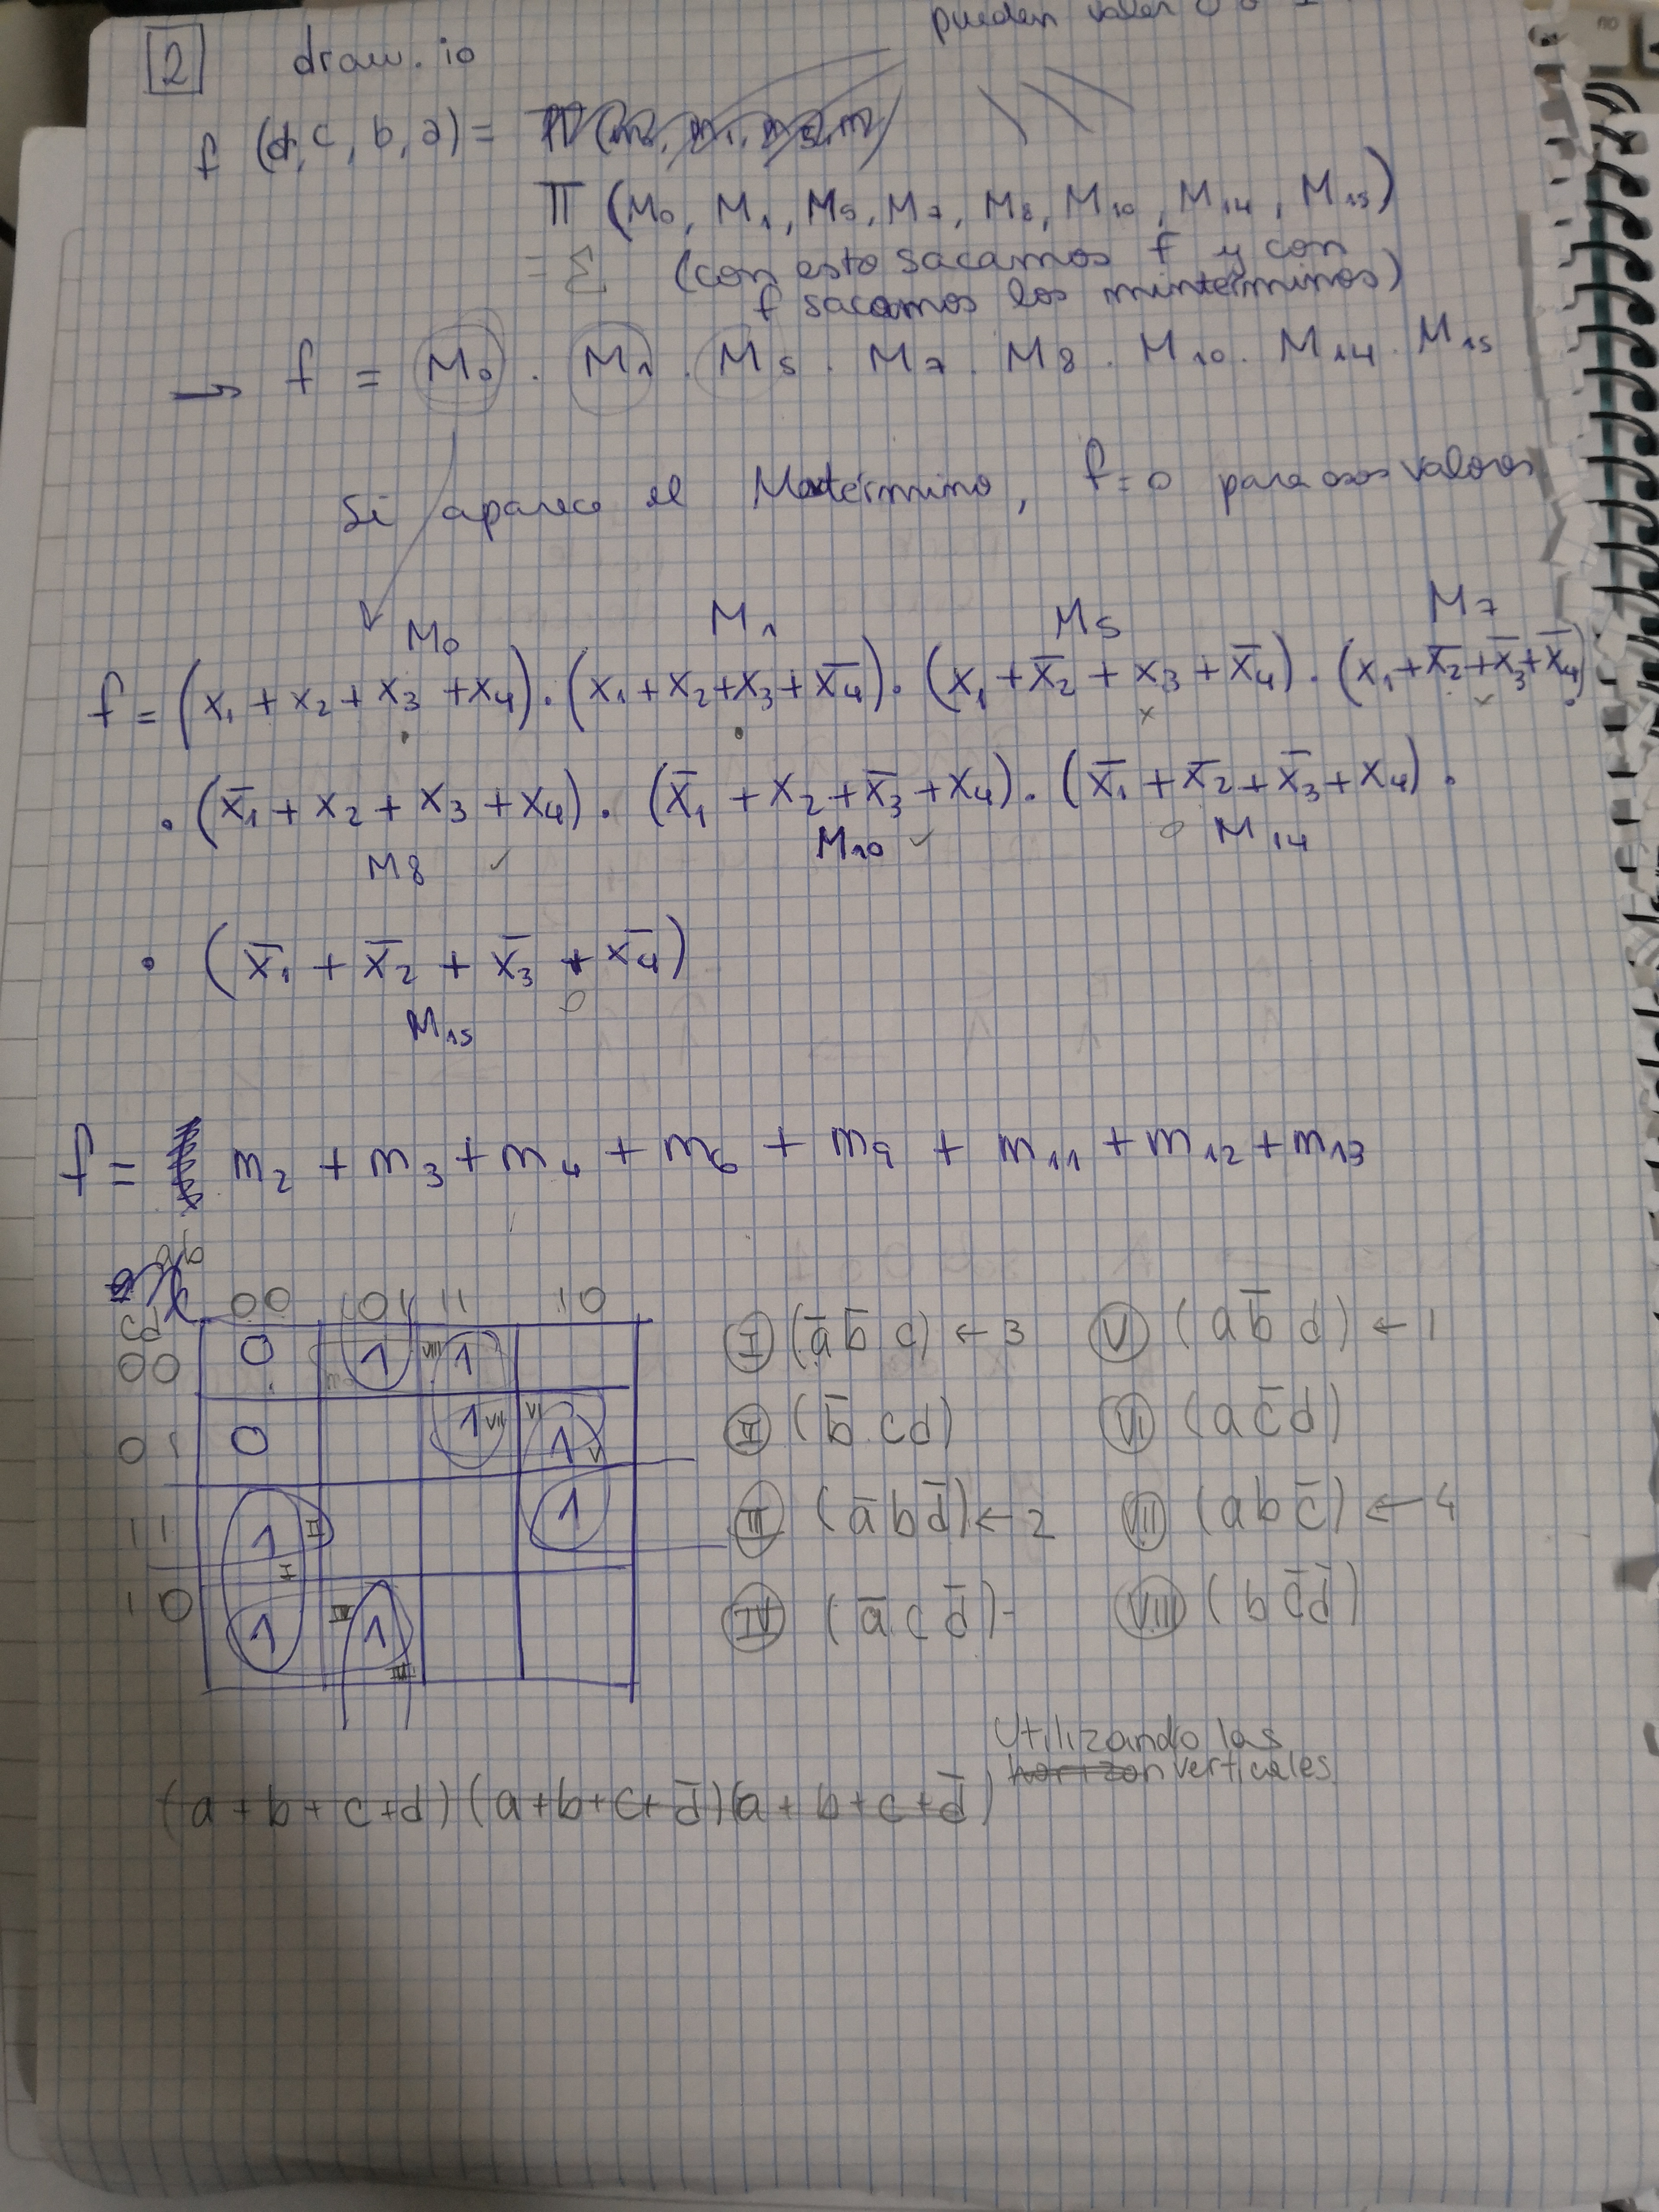 pueden valer 0 o 1
2 draw.io
f (d, c, b, a) =
Π (M₀, M₁, M₅, M₇, M₈, M₁₀, M₁₄, M₁₅)
= Σ (con esto sacamos f y con
f sacamos los mintérminos)
→ f = M₀ · M₁ · M₅ · M₇ · M₈ · M₁₀ · M₁₄ · M₁₅
Si aparece el Maxtérmino, f=0 para esos valores
M₀ M₁ M₅ M₇
f = (x₁ + x₂ + x₃ + x₄) · (x₁ + x₂ + x₃ + x̄₄) · (x₁ + x̄₂ + x₃ + x̄₄) · (x₁ + x̄₂ + x̄₃ + x̄₄)
· (x̄₁ + x₂ + x₃ + x₄) · (x̄₁ + x₂ + x̄₃ + x₄) · (x̄₁ + x̄₂ + x̄₃ + x₄) ·
M₈ ✓ M₁₀ ✓ 0 M₁₄
· (x̄₁ + x̄₂ + x̄₃ + x̄₄)
M₁₅ 0
f = m₂ + m₃ + m₄ + m₆ + m₉ + m₁₁ + m₁₂ + m₁₃
ab
cd 00 01 11 10
00 0 1 VIII 1
01 0 1 VII VI 1 V
11 1 II 1
I
10 1 IV 1
III
I (ā b̄ c) ← 3 V (a b̄ d) ← 1
II (b̄ c d) VI (a c̄ d)
III (ā b d̄) ← 2 VII (a b c̄) ← 4
IV (ā c d̄) - VIII (b c̄ d̄)
Utilizando las
horizon verticales
(a + b + c + d) (a + b + c + d̄) (a + b + c + d̄)